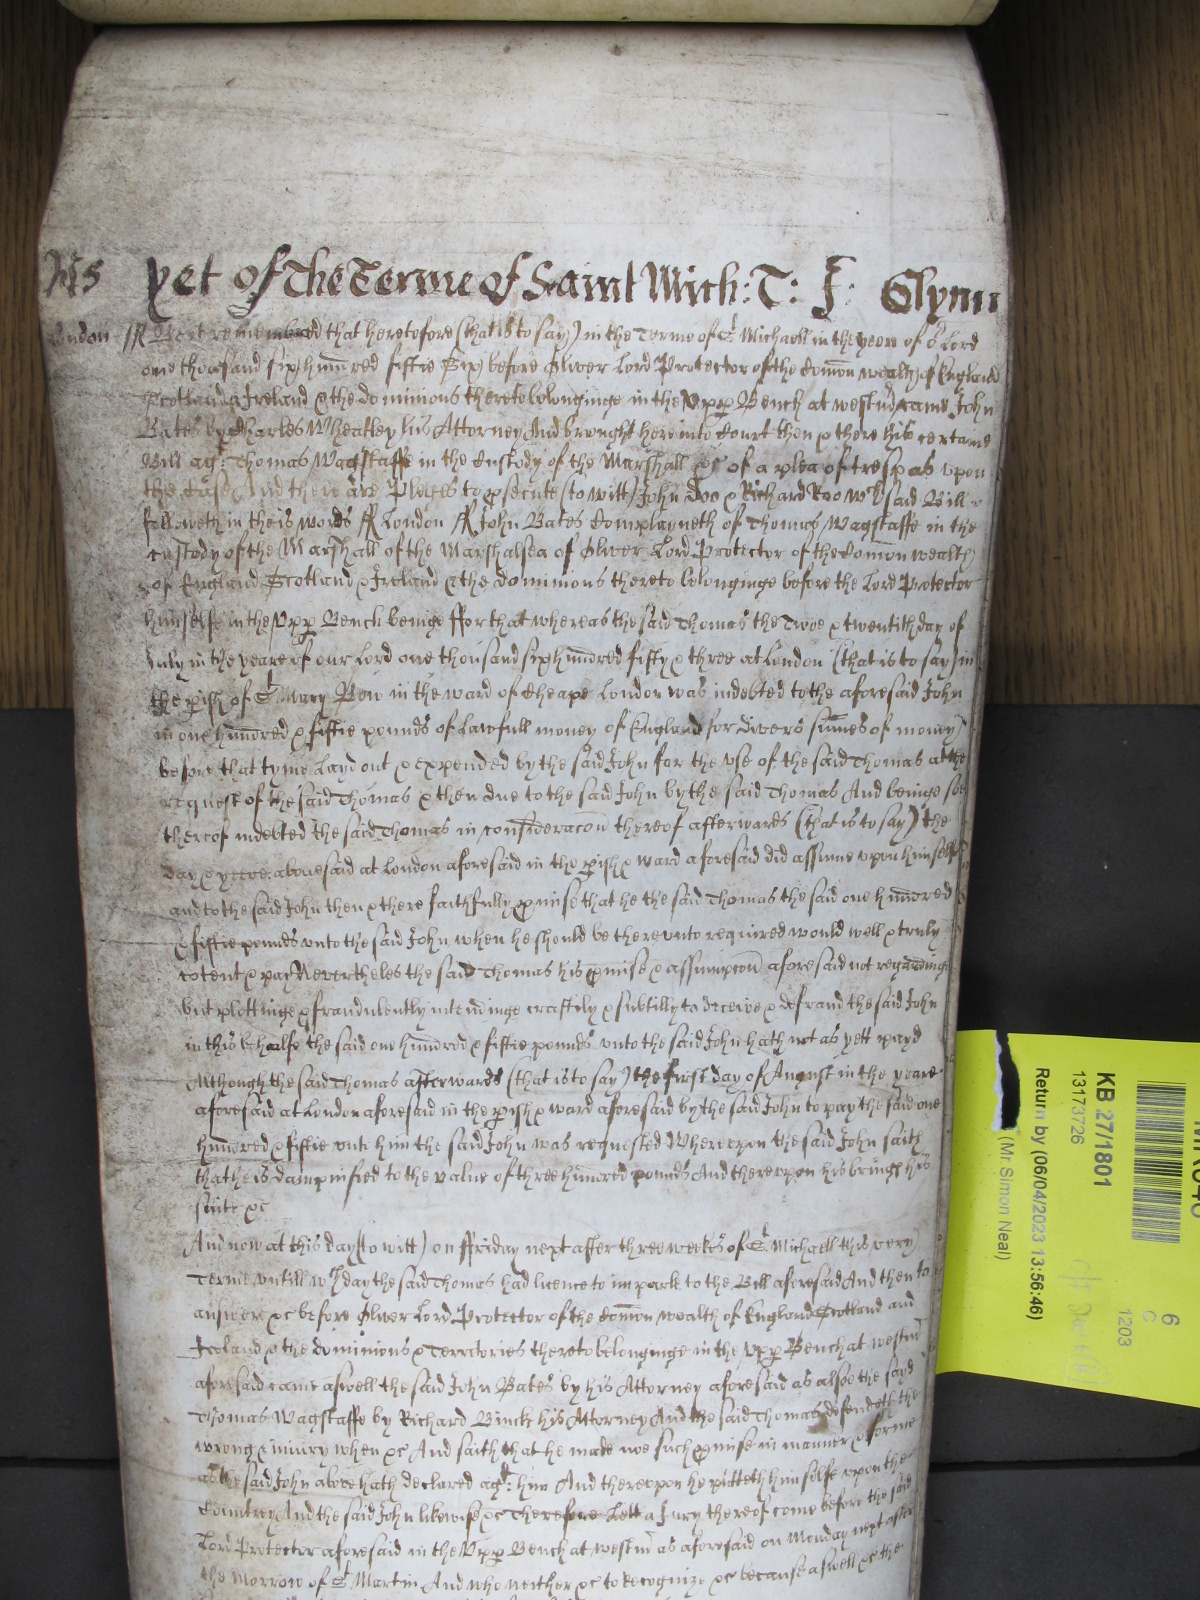 yet of the Terme of Saint Mich: T: Glynn
London Be it remembred that heretofore (that is to say) in the Terme of St Michaell in the yeare of or Lord
one thousand six hundred fiftie Six before Oliver Lord Protector of the Comon wealth of England
Scotland & Ireland & the dominions thereto belonginge in the Upp Bench at Westmr came John
Bates by Charles Wheatley his Attorney And brought here into Court then & there his certaine
Bill agt Thomas Wagstaffe in the Custody of the Marshall &c of a plea of trespas upon
the Case And there are Pledges to psecute (to witt) John Doo & Richard Roo wch said Bill
followeth in theis words ss London ss John Bates Complayneth of Thomas Wagstaffe in the
custody of the Marshall of the Marshalsea of Oliver Lord Protector of the Comon wealth
of England Scotland & Ireland & the dominions thereto belonginge before the Lord Protector
himselfe in the Upp Bench beinge ffor that whereas the said Thomas the Twoe & twentith day of
July in the yeare of our Lord one thousand six hundred fifty & three at London (that is to say) in
the pish of St Mary Bow in the ward of Cheape London was indebted to the aforesaid John
in one hundred & fiftie pounds of Lawfull money of England for divers sumes of money
before that tyme Layd out & expended by the said John for the use of the said Thomas at the
request of the said Thomas & then due to the said John by the said Thomas And beinge soe
thereof indebted the said Thomas in consideracon thereof afterwards (that is to say) the
day & yeare abovesaid at London aforesaid in the pish & ward aforesaid did assume upon himselfe
and to the said John then & there faithfully pmise that he the said Thomas the said one hundred
& fiftie pounds unto the said John when he should be thereunto required would well & truly
content & pay Nevertheles the said Thomas his pmise & assumpcon aforesaid not regarding
but plottinge & fraudulently intendinge craftily & subtilly to deceive & defraud the said John
in this behalfe the said one hundred & fiftie pounds unto the said John hath not as yett payd
Although the said Thomas afterwards (that is to say) the first day of August in the yeare
aforesaid at London aforesaid in the pish & ward aforesaid by the said John to pay the said one
hundred & fiftie unto him the said John was requested Whereupon the said John saith
that he is dampnified to the value of three hundred pounds And thereupon he bringe his
suite &c
And now at this day (to witt) on ffriday next after three weekes of St Michaell this very
Terme untill wch day the said Thomas had licence to imparle to the Bill aforesaid And then to
answer &c before Oliver Lord Protector of the Comon wealth of England Scotland and
Ireland & the dominions & Territories thereto belonginge in the Upp Bench at Westmr
aforesaid came aswell the said John Bates by his Attorney aforesaid as alsoe the said
Thomas Wagstaffe by Richard Binck his Attorney And the said Thomas defendeth the
wrong & injury when &c And saith that he made noe such pmise in manner & forme
as the said John above hath declared agt him And thereupon he putteth himselfe upon the
Countrey And the said John likewise &c Therefore Lett a Jury thereof come before the said
Lord Protector aforesaid in the Upp Bench at Westmr as aforesaid on Monday next after
the Morrow of St Martin And who neither &c to Recognize &c because aswell &c the
KB 27/1801
13173726
Return by (06/04/2023 13:56:46)
(Mr Simon Neal)
6
C
1203